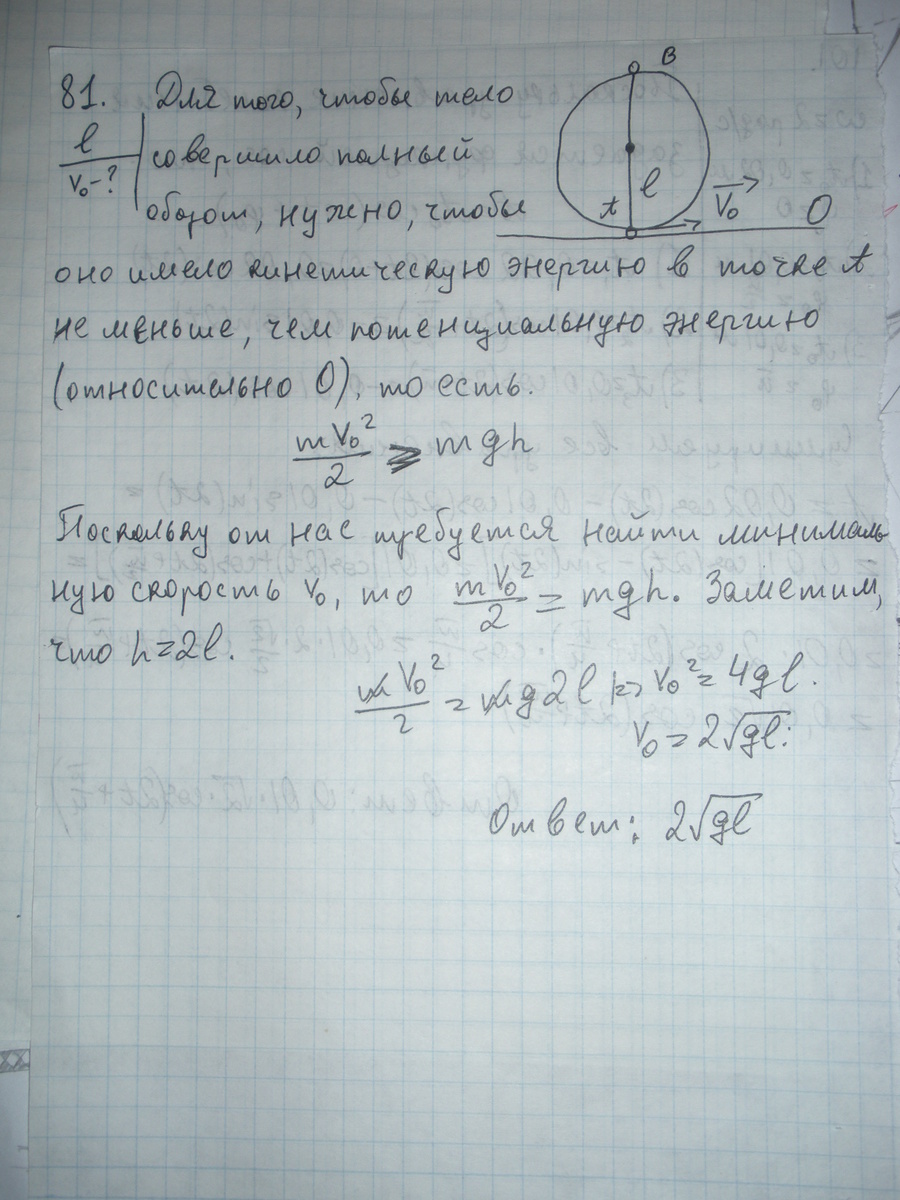 81. Для того, чтобы тело
l
v₀-?
совершило полный
оборот, нужно, чтобы
B
l
A
V₀
O
оно имело кинетическую энергию в точке A
не меньше, чем потенциальную энергию
(относительно O), то есть.
mV₀²/2 ⩾ mgh
Поскольку от нас требуется найти минималь-
ную скорость V₀, то mV₀²/2 = mgh. Заметим,
что h=2l.
mV₀²/2 = mg2l |=> V₀² = 4gl.
V₀ = 2√gl.
Ответ: 2√gl